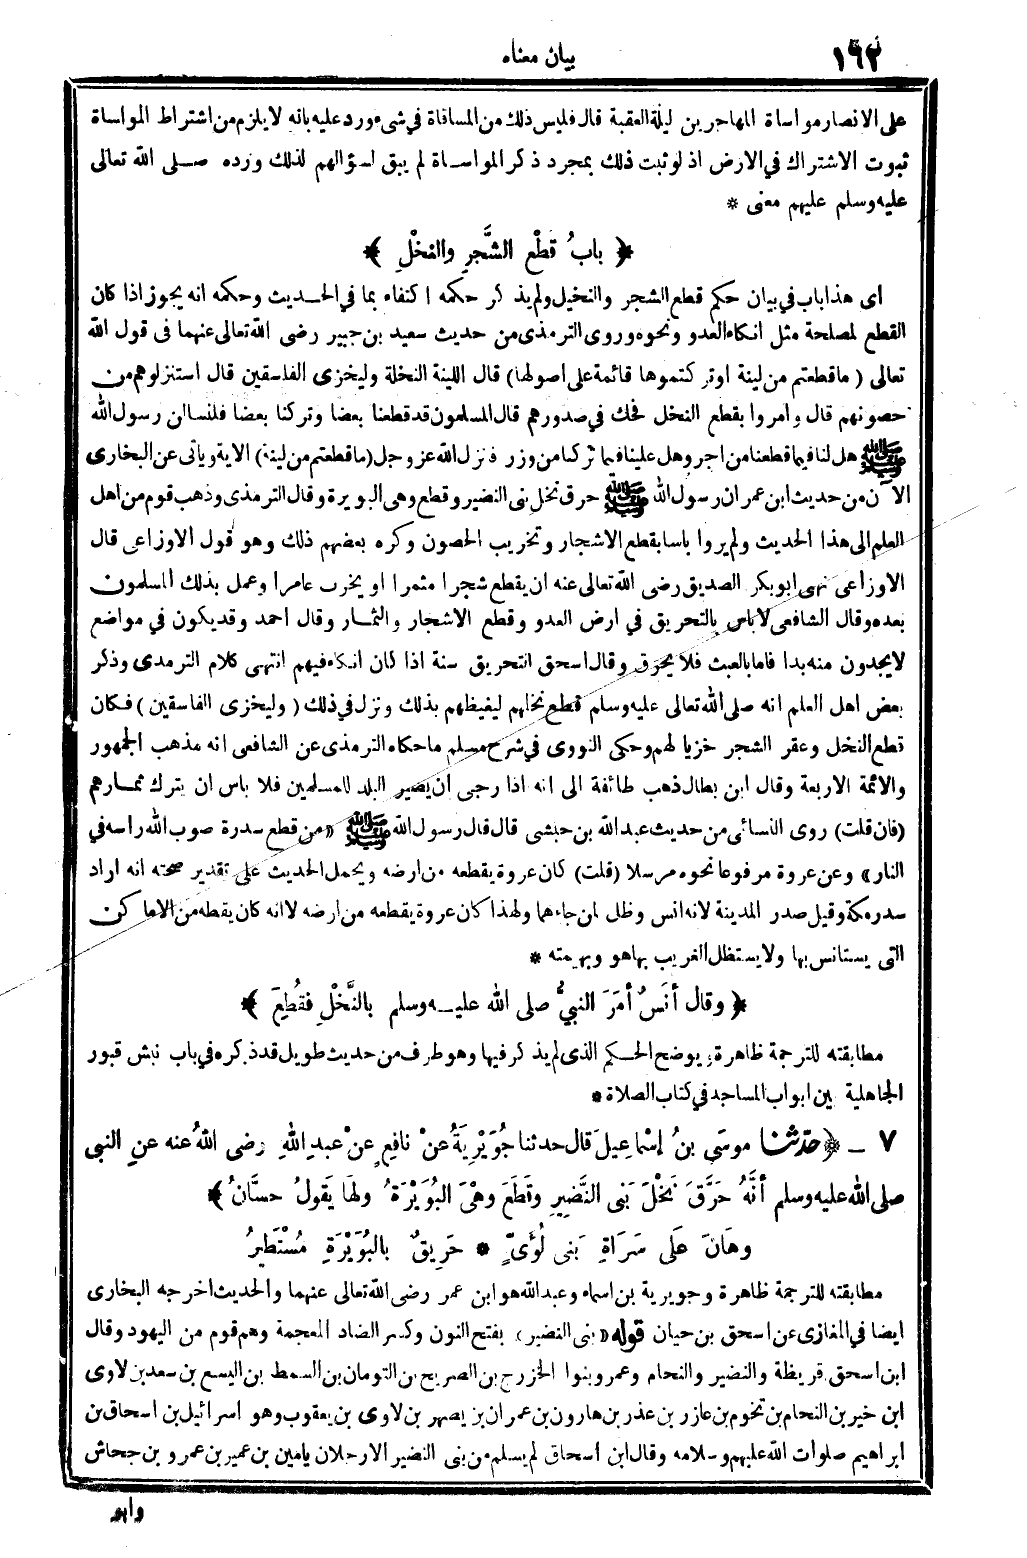 ١٦٢
بيان معناه
على الانصار مواساة المهاجرين ليلة العقبة قال فليس ذلك من المساقاة في شيء ورد عليه بانه لا يلزم من اشتراط المواساة
ثبوت الاشتراك في الارض اذ لو ثبت ذلك بمجرد ذكر المواساة لم يبق لسؤالهم لذلك ورده صلى الله تعالى
عليه وسلم عليهم معنى *
﴿ بابُ قَطْعِ الشَّجَرِ والنَّخْلِ ﴾
اى هذا باب في بيان حكم قطع الشجر والنخيل ولم يذكر حكمه اكتفاء بما في الحديث وحكمه انه يجوز اذا كان
القطع لمصلحة مثل انكاء العدو ونحوه وروى الترمذى من حديث سعيد بن جبير رضى الله تعالى عنهما فى قول الله
تعالى ( ما قطعتم من لينة او تركتموها قائمة على اصولها) قال اللينة النخلة وليخزى الفاسقين قال استنزلوهم من
حصونهم قال وامروا بقطع النخل فحك في صدورهم قال المسلمون قد قطعنا بعضا وتركنا بعضا فلنسالن رسول الله
ﷺ هل لنا فيما قطعنا من اجر وهل علينا فيما تركنا من وزر فانزل الله عز وجل (ما قطعتم من لينة) الاية وياتى عن البخارى
الآن من حديث ابن عمر ان رسول الله ﷺ حرق نخل بنى النضير وقطع وهى البويرة وقال الترمذى وذهب قوم من اهل
العلم الى هذا الحديث ولم يروا باسا بقطع الاشجار وتخريب الحصون وكره بعضهم ذلك وهو قول الاوزاعى قال
الاوزاعى نهى ابو بكر الصديق رضى الله تعالى عنه ان يقطع شجرا مثمرا او يخرب عامرا وعمل بذلك المسلمون
بعده وقال الشافعى لا باس بالتحريق في ارض العدو وقطع الاشجار والثمار وقال احمد وقد يكون في مواضع
لا يجدون منه بدا فاما بالعبث فلا يحرق وقال اسحق التحريق سنة اذا كان انكاء فيهم انتهى كلام الترمذى وذكر
بعض اهل العلم انه صلى الله تعالى عليه وسلم قطع نخلهم ليغيظهم بذلك ونزل في ذلك ( وليخزى الفاسقين ) فكان
قطع النخل وعقر الشجر خزيا لهم وحكى النووى في شرح مسلم ما حكاه الترمذى عن الشافعى انه مذهب الجمهور
والائمة الاربعة وقال ابن بطال ذهب طائفة الى انه اذا رجى ان يصير البلد للمسلمين فلا باس ان يترك ثمارهم
(فان قلت) روى النسائى من حديث عبد الله بن حبشى قال قال رسول الله ﷺ «من قطع سدرة صوب الله راسه في
النار» وعن عروة مرفوعا نحوه مرسلا (قلت) كان عروة يقطعه من ارضه ويحمل الحديث على تقدير صحته انه اراد
سدر مكة وقيل سدر المدينة لانه انس وظل لمن جاءهما ولهذا كان عروة يقطعه من ارضه لا انه كان يقطعه من الاماكن
التى يستانس بها ولا يستظل الغريب بها هو وبهيمته *
﴿ وقال أنَسٌ أمَرَ النبيُّ صلى الله عليه وسلم بالنَّخْلِ فَقُطِعَ ﴾
مطابقته للترجمة ظاهرة يوضح الحكم الذى لم يذكر فيها وهو طرف من حديث طويل قد ذكره في باب نبش قبور
الجاهلية بين ابواب المساجد في كتاب الصلاة *
٧ – ﴿ حدّثنا موسَى بنُ إسْماعِيلَ قال حدثنا جُوَيْرِيَةُ عنْ نافِعٍ عنْ عبدِ اللهِ رضى اللهُ عنه عنِ النبى
صلى الله عليه وسلم أنَّهُ حَرَّقَ نَخْلَ بَنى النَّضِيرِ وقَطَعَ وهْىَ البُوَيْرَةُ ولهَا يَقولُ حسَّانُ ﴾
وهَانَ علَى سَرَاةِ بَنى لُؤَىٍّ * حَرِيقٌ بالبُوَيْرَةِ مُسْتَطِيرُ
مطابقته للترجمة ظاهرة وجويرية بن اسماء وعبد الله هو ابن عمر رضى الله تعالى عنهما والحديث اخرجه البخارى
ايضا في المغازى عن اسحق بن حيان قوله «بنى النضير» بفتح النون وكسر الضاد المعجمة وهم قوم من اليهود وقال
ابن اسحق قريظة والنضير والنحام وعمرو بنوا الخزرج بن الصريح بن التومان بن السمط بن اليسع بن سعد بن لاوى
ابن خير بن النحام بن تخوم بن عازر بن عذر بن هارون بن عمران بن يصهر بن لاوى بن يعقوب وهو اسرائيل بن اسحاق بن
ابراهيم صلوات الله عليهم وسلامه وقال ابن اسحاق لم يسلم من بنى النضير الا رجلان يامين بن عمير بن عمرو بن جحاش
وابو